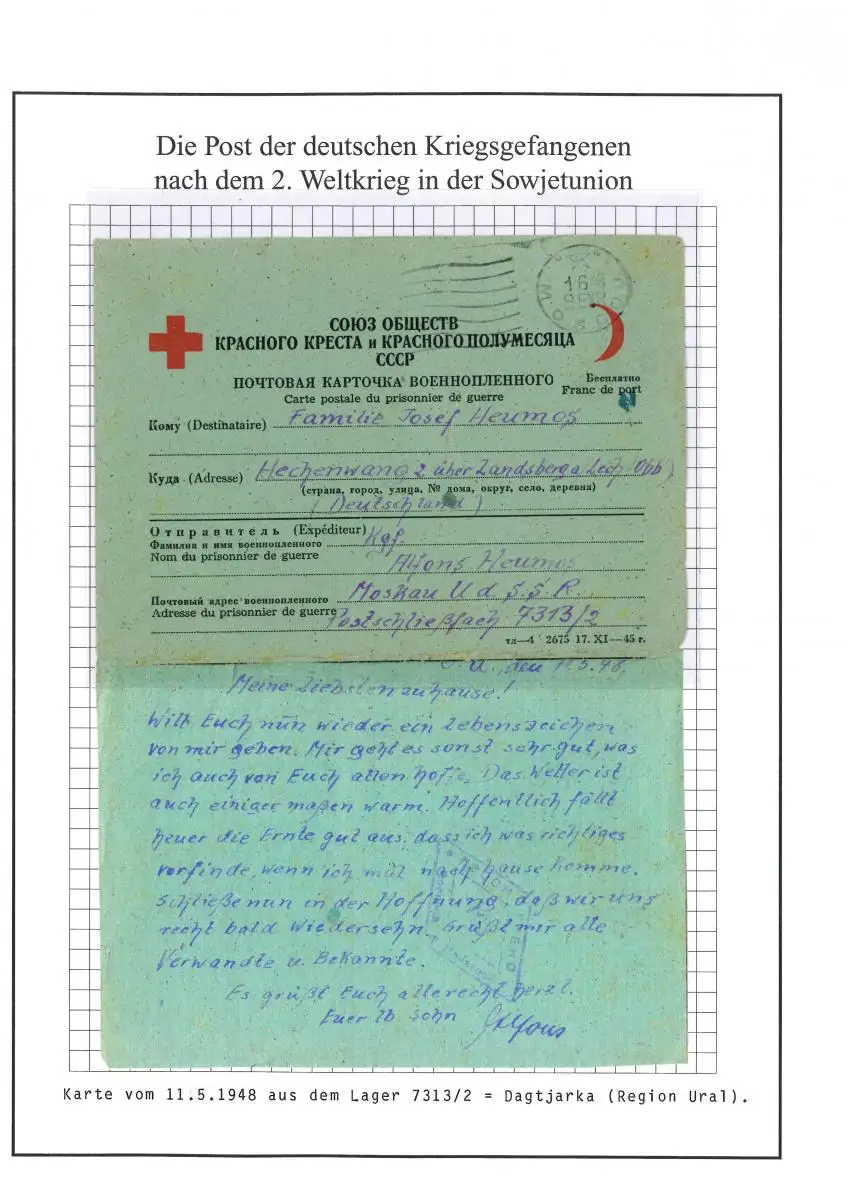 Die Post der deutschen Kriegsgefangenen
nach dem 2. Weltkrieg in der Sowjetunion
16
СОЮЗ ОБЩЕСТВ
КРАСНОГО КРЕСТА и КРАСНОГО ПОЛУМЕСЯЦА
СССР
ПОЧТОВАЯ КАРТОЧКА ВОЕННОПЛЕННОГО
Бесплатно
Carte postale du prisonnier de guerre
Franc de port
Кому (Destinataire) Familie Josef Heumos
Куда (Adresse) Hechenwang 2 über Landsberg a Lech Obb)
(страна, город, улица, № дома, округ, село, деревня)
(Deutschland)
Отправитель (Expéditeur) Kgf.
Фамилия и имя военнопленного
Nom du prisonnier de guerre Alfons Heumos
Почтовый адрес военнопленного Moskau U d. S. S. R.
Adresse du prisonnier de guerre Postschließfach 7313/2
тл—4 2675 17. XI—45 г.
den 11.5.48.
Meine Liebsten zuhause!
Will Euch nun wieder ein Lebenszeichen
von mir geben. Mir geht es sonst sehr gut, was
ich auch von Euch allen hoffe. Das Wetter ist
auch einiger maßen warm. Hoffentlich fällt
heuer die Ernte gut aus. dass ich was richtiges
vorfinde, wenn ich mal nach hause komme.
Schließe nun in der Hoffnung, daß wir uns
recht bald Wiedersehn. Grüßt mir alle
Verwandte u. Bekannte.
Es grüßt Euch alle recht herzl.
Euer lb Sohn Alfons
Karte vom 11.5.1948 aus dem Lager 7313/2 = Dagtjarka (Region Ural).